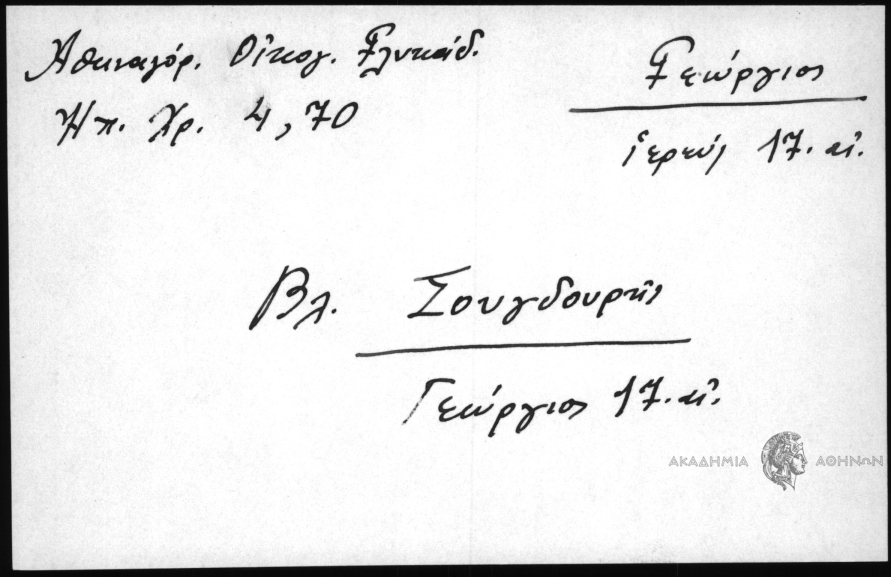 Ἀθηναγόρ. Οἴκογ. Γλυκάδ.
Ἠπ. Χρ. 4, 70
Γεώργιος
ἱερεύς 17. αἰ.
Βλ. Σουγδουρῆς
Γεώργιος 17. αἰ.
ΑΚΑΔΗΜΙΑ ΑΘΗΝΩΝ